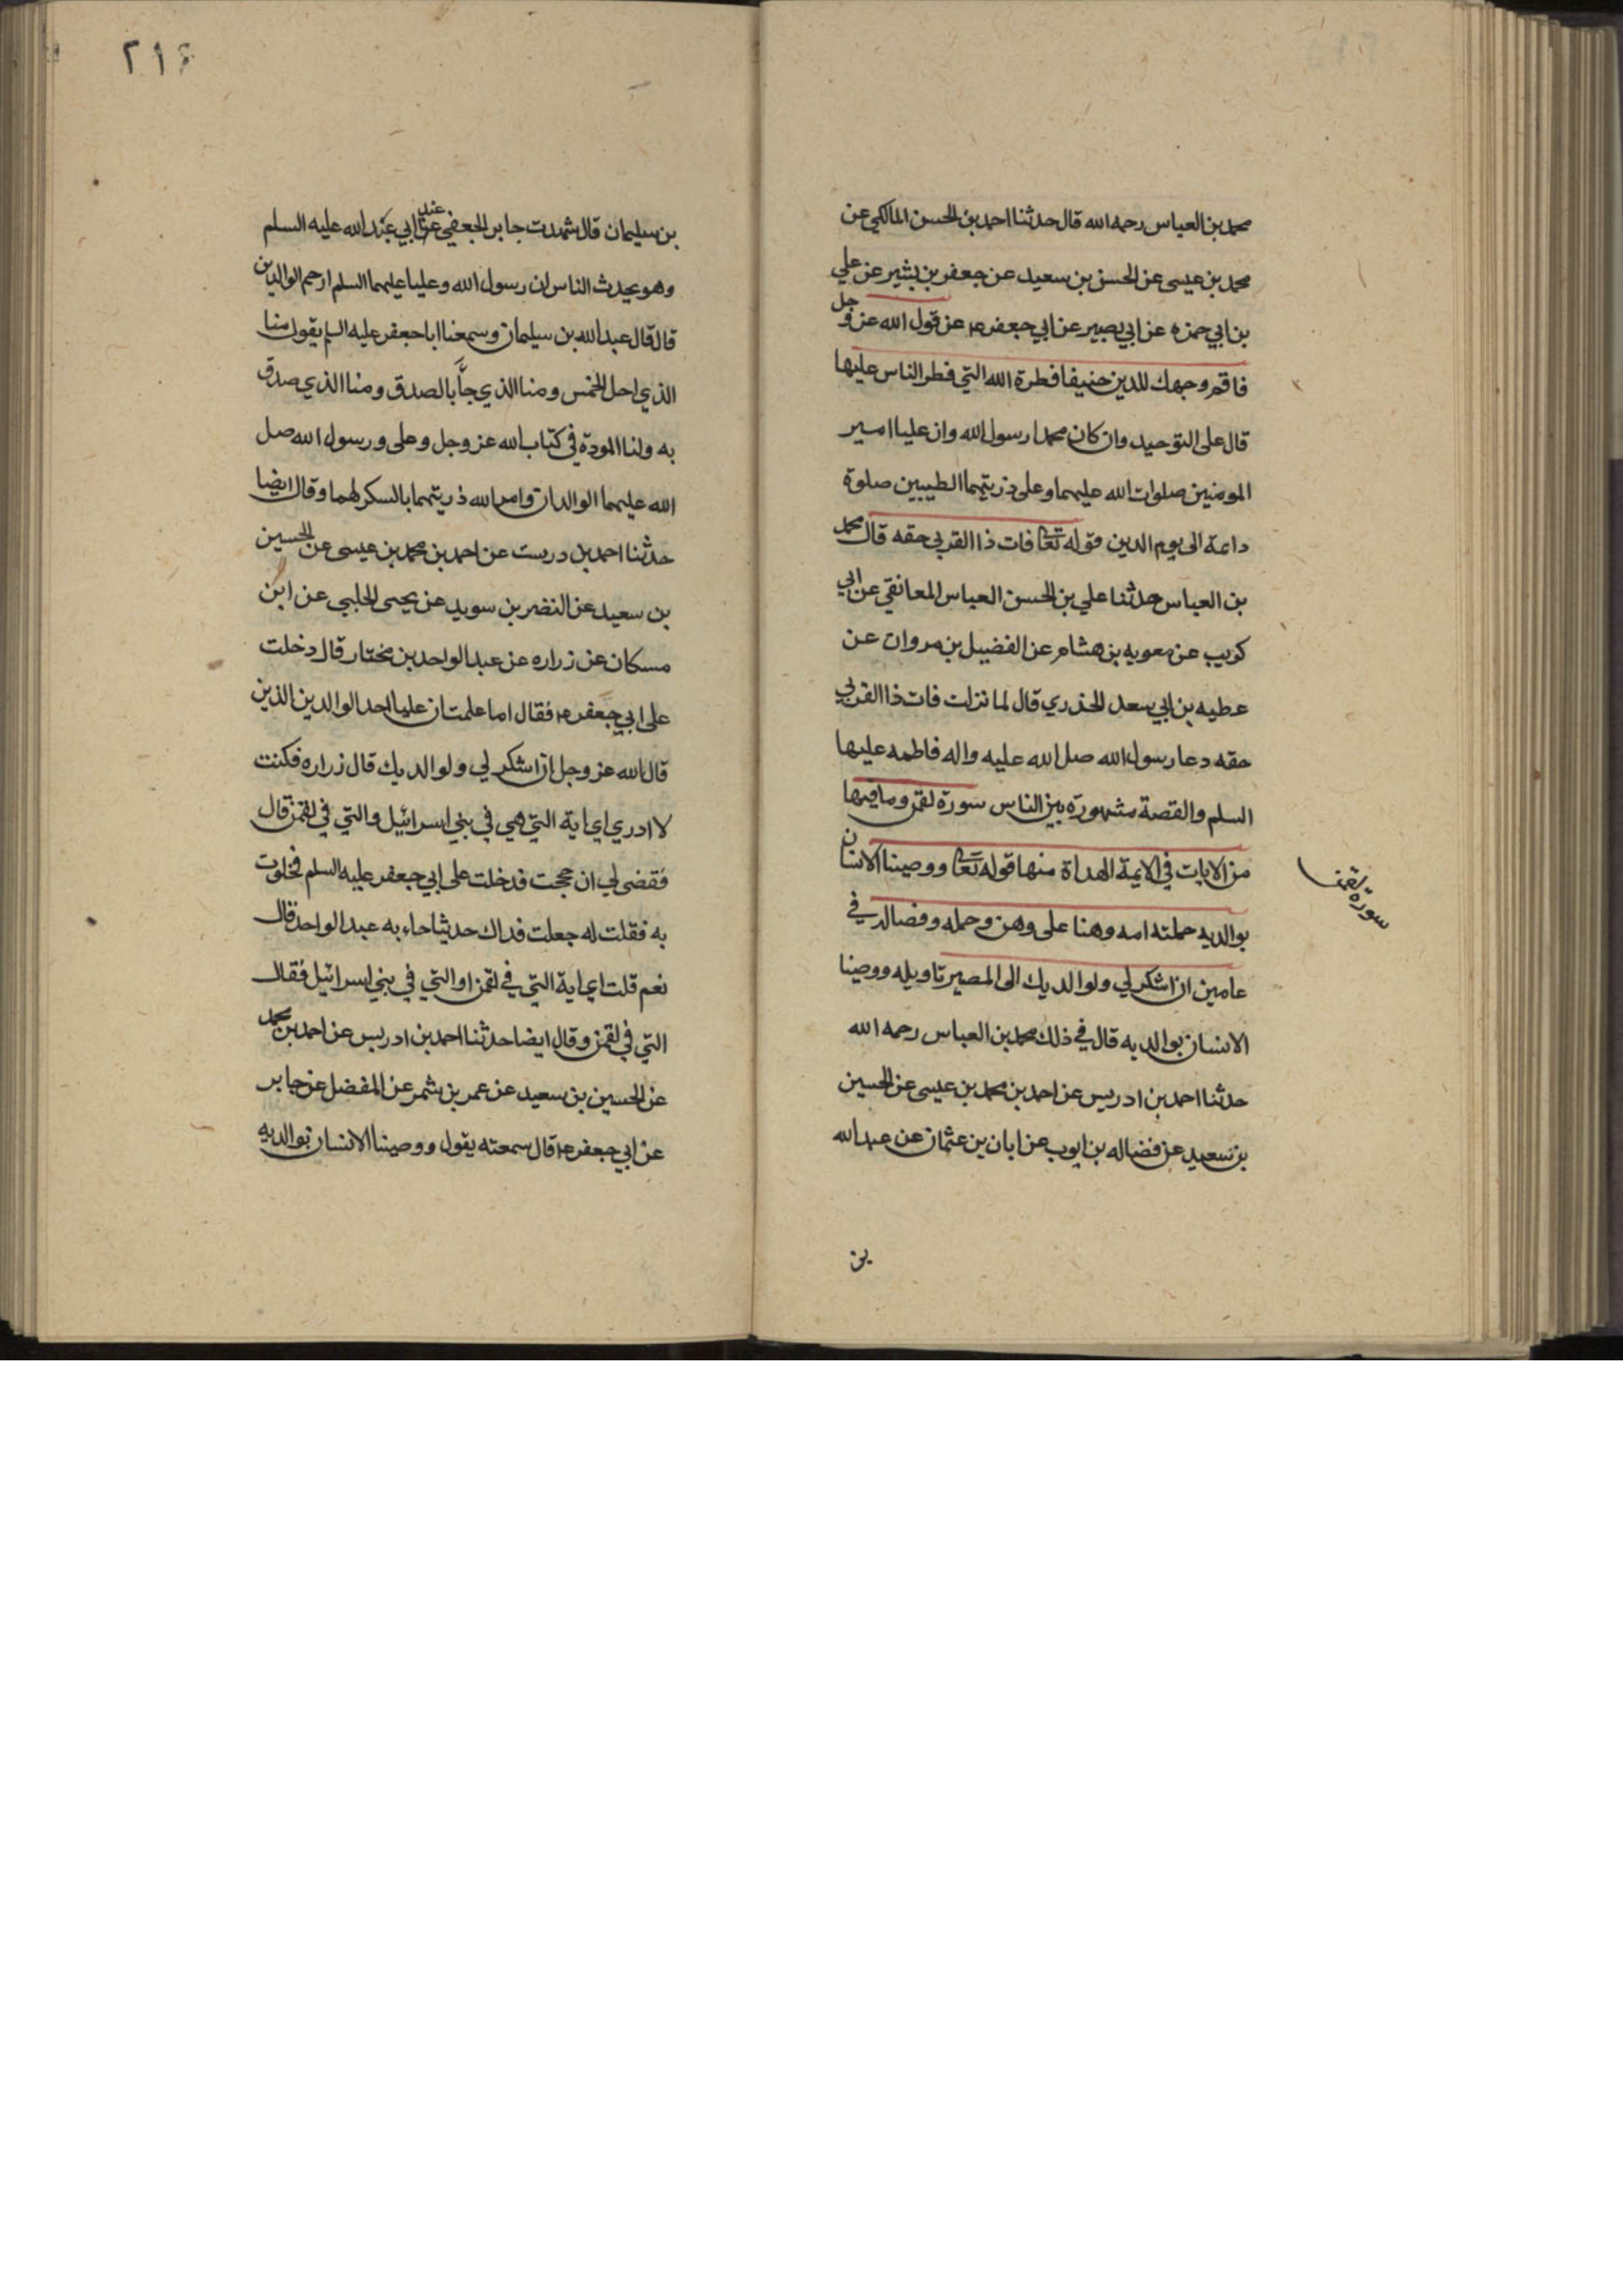 محمد بن العباس رحمه الله قال حدثنا احمد بن الحسن المالكي عن
محمد بن عيسى عن الحسن بن سعيد عن جعفر بن بشير عن علي
بن ابي حمزه عن ابي بصير عن ابي جعفر ع عن قول الله عز و جل
فاقم وجهك للدين حنيفا فطرة الله التي فطر الناس عليها
قال على التوحيد وان كان محمدا رسول الله وان عليا امير
المومنين صلوات الله عليهما وعلى ذريتهما الطيبين صلوة
دائمة الى يوم الدين وقوله تعا فات ذا القربى حقه قال محمد
بن العباس حدثنا علي بن الحسن العباس المعانقي عن ابي
كريب عن معويه بن هشام عن الفضيل بن مروان عن
عطيه بن ابي سعد الخذري قال لما نزلت فات ذا القربى
حقه دعا رسول الله صل الله عليه واله فاطمه عليها
السلم والقصة مشهورة بين الناس سورة لقمن وما فيها
من الايات في الايمة الهداة منها قوله تعا ووصينا الانسان
بوالديه حملته امه وهنا على وهن وحمله وفصاله في
عامين ان اشكر لي ولوالديك الى المصير تاويله ووصينا
الانسان بوالديه قال في ذلك محمد بن العباس رحمه الله
حدثنا احمد بن ادريس عن احمد بن محمد بن عيسى عن الحسين
بن سعيد عن فضاله بن ايوب عن ابان بن عثمان عن عبد الله
بن
سورة لقمن
٢١٤
بن سليمان قال شهدت جابر الجعفي عن عند ابي عبد الله عليه السلم
وهو يحدث الناس ان رسول الله وعليا عليهما السلم ارحم الوالدين
قال قال عبد الله بن سيلمان وسمعنا ابا جعفر عليه السلم يقول منا
الذي احل الخمس ومنا الذي جآ بالصدق ومنا الذي صدق
به ولنا المودة في كتاب الله عز وجل وعلى ورسول الله صل
الله عليهما الوالدان وامر الله ذريتهما بالسكر لهما وقال ايضا
حدثنا احمد بن دريست عن احمد بن محمد بن عيسى عن الحسين
بن سعيد عن النضر بن سويد عن يحيى الحلبي عن ابن
مسكان عن زراره عن عبد الواحد بن مختار قال دخلت
على ابي جعفر ع فقال اما علمت ان عليا احد الوالدين الذين
قال الله عز وجل ان اشكر لي ولوالديك قال زراره فكنت
لا ادري اي اية التي هي في بني اسرائيل والتي في لقمن قال
فقضى لي ان حججت فدخلت على ابي جعفر عليه السلم فخلوت
به فقلت له جعلت فداك حديثا جاء به عبد الواحد قال
نعم قلت اي اية التي في لقمن او التي في بني اسرائيل فقال
التي في لقمن وقال ايضا حدثنا احمد بن ادريس عن احمد بن محمد
عن الحسين بن سعيد عن عمر بن شمر عن المفضل عن جابر
عن ابي جعفر ع قال سمعته يقول ووصينا الانسان بوالديه